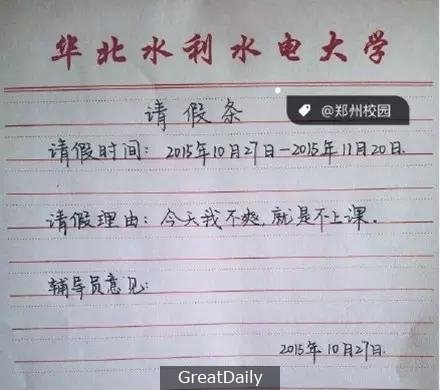 华北水利水电大学
@郑州校园
请假条
请假时间：2015年10月27日—2015年11月20日.
请假理由：今天我不爽，就是不上课.
辅导员意见：
2015年10月27日.
GreatDaily